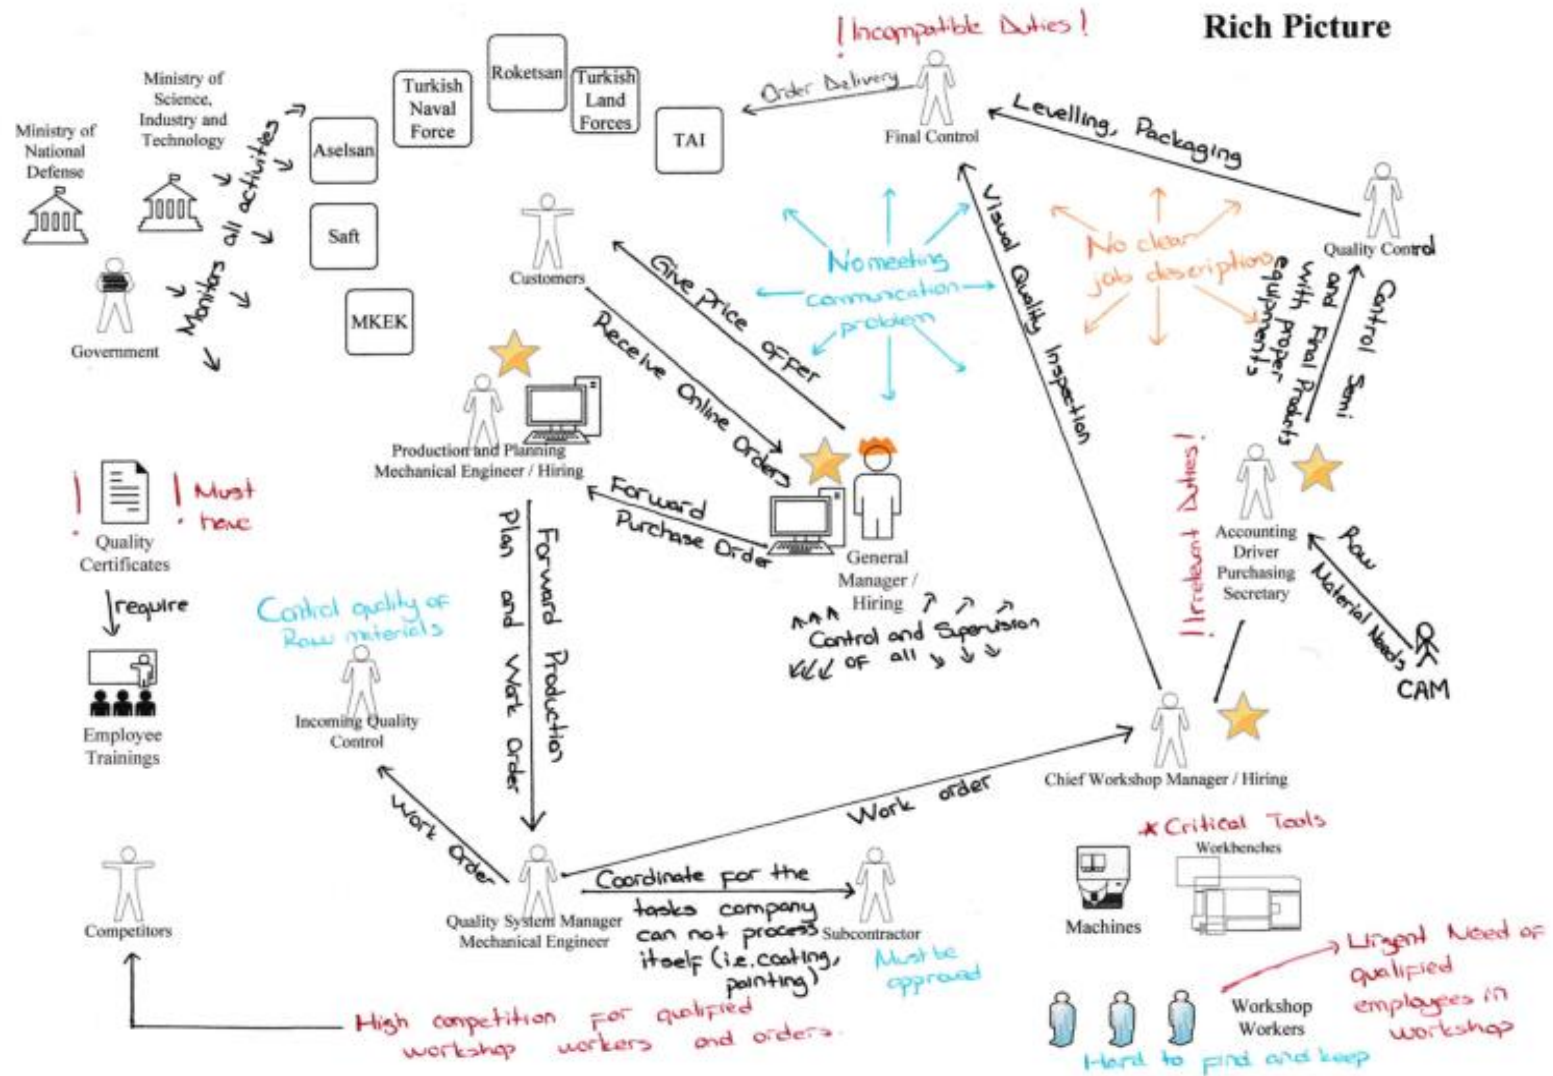 Rich Picture
! Incompatible Duties !
Ministry of
National
Defense
Ministry of
Science,
Industry and
Technology
Government
Monitors all activities
Aselsan
Turkish
Naval
Force
Roketsan
Turkish
Land
Forces
TAI
Saft
MKEK
Order Delivery
Final Control
Levelling, Packaging
Quality Control
Customers
Give price offer
Receive Online Orders
No meeting
communcation
problem
No clear
job descriptions
Visual Quality Inspection
Control Semi
and Final Products
with proper
equipments
Production and Planning
Mechanical Engineer / Hiring
Forward
Purchase Order
General
Manager /
Hiring
Control and Supervision
of all
! Irrelevant Duties !
Accounting
Driver
Purchasing
Secretary
Raw
Material Needs
CAM
! ! Must
have
Quality
Certificates
require
Employee
Trainings
Control quality of
Raw materials
Incoming Quality
Control
Forward Production
Plan and Work Order
Work Order
Work order
Chief Workshop Manager / Hiring
* Critical Tools
Workbenches
Machines
Competitors
Quality System Manager
Mechanical Engineer
Coordinate for the
tasks company
can not process
itself (i.e. coating,
painting)
Subcontractor
Must be
approved
High competition for qualified
workshop workers and orders.
Workshop
Workers
Urgent Need of
qualified
employees in
workshop
Hard to find and keep